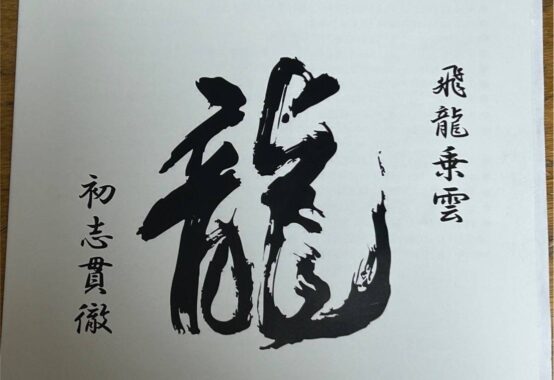 飛龍乗雲
龍
初志貫徹